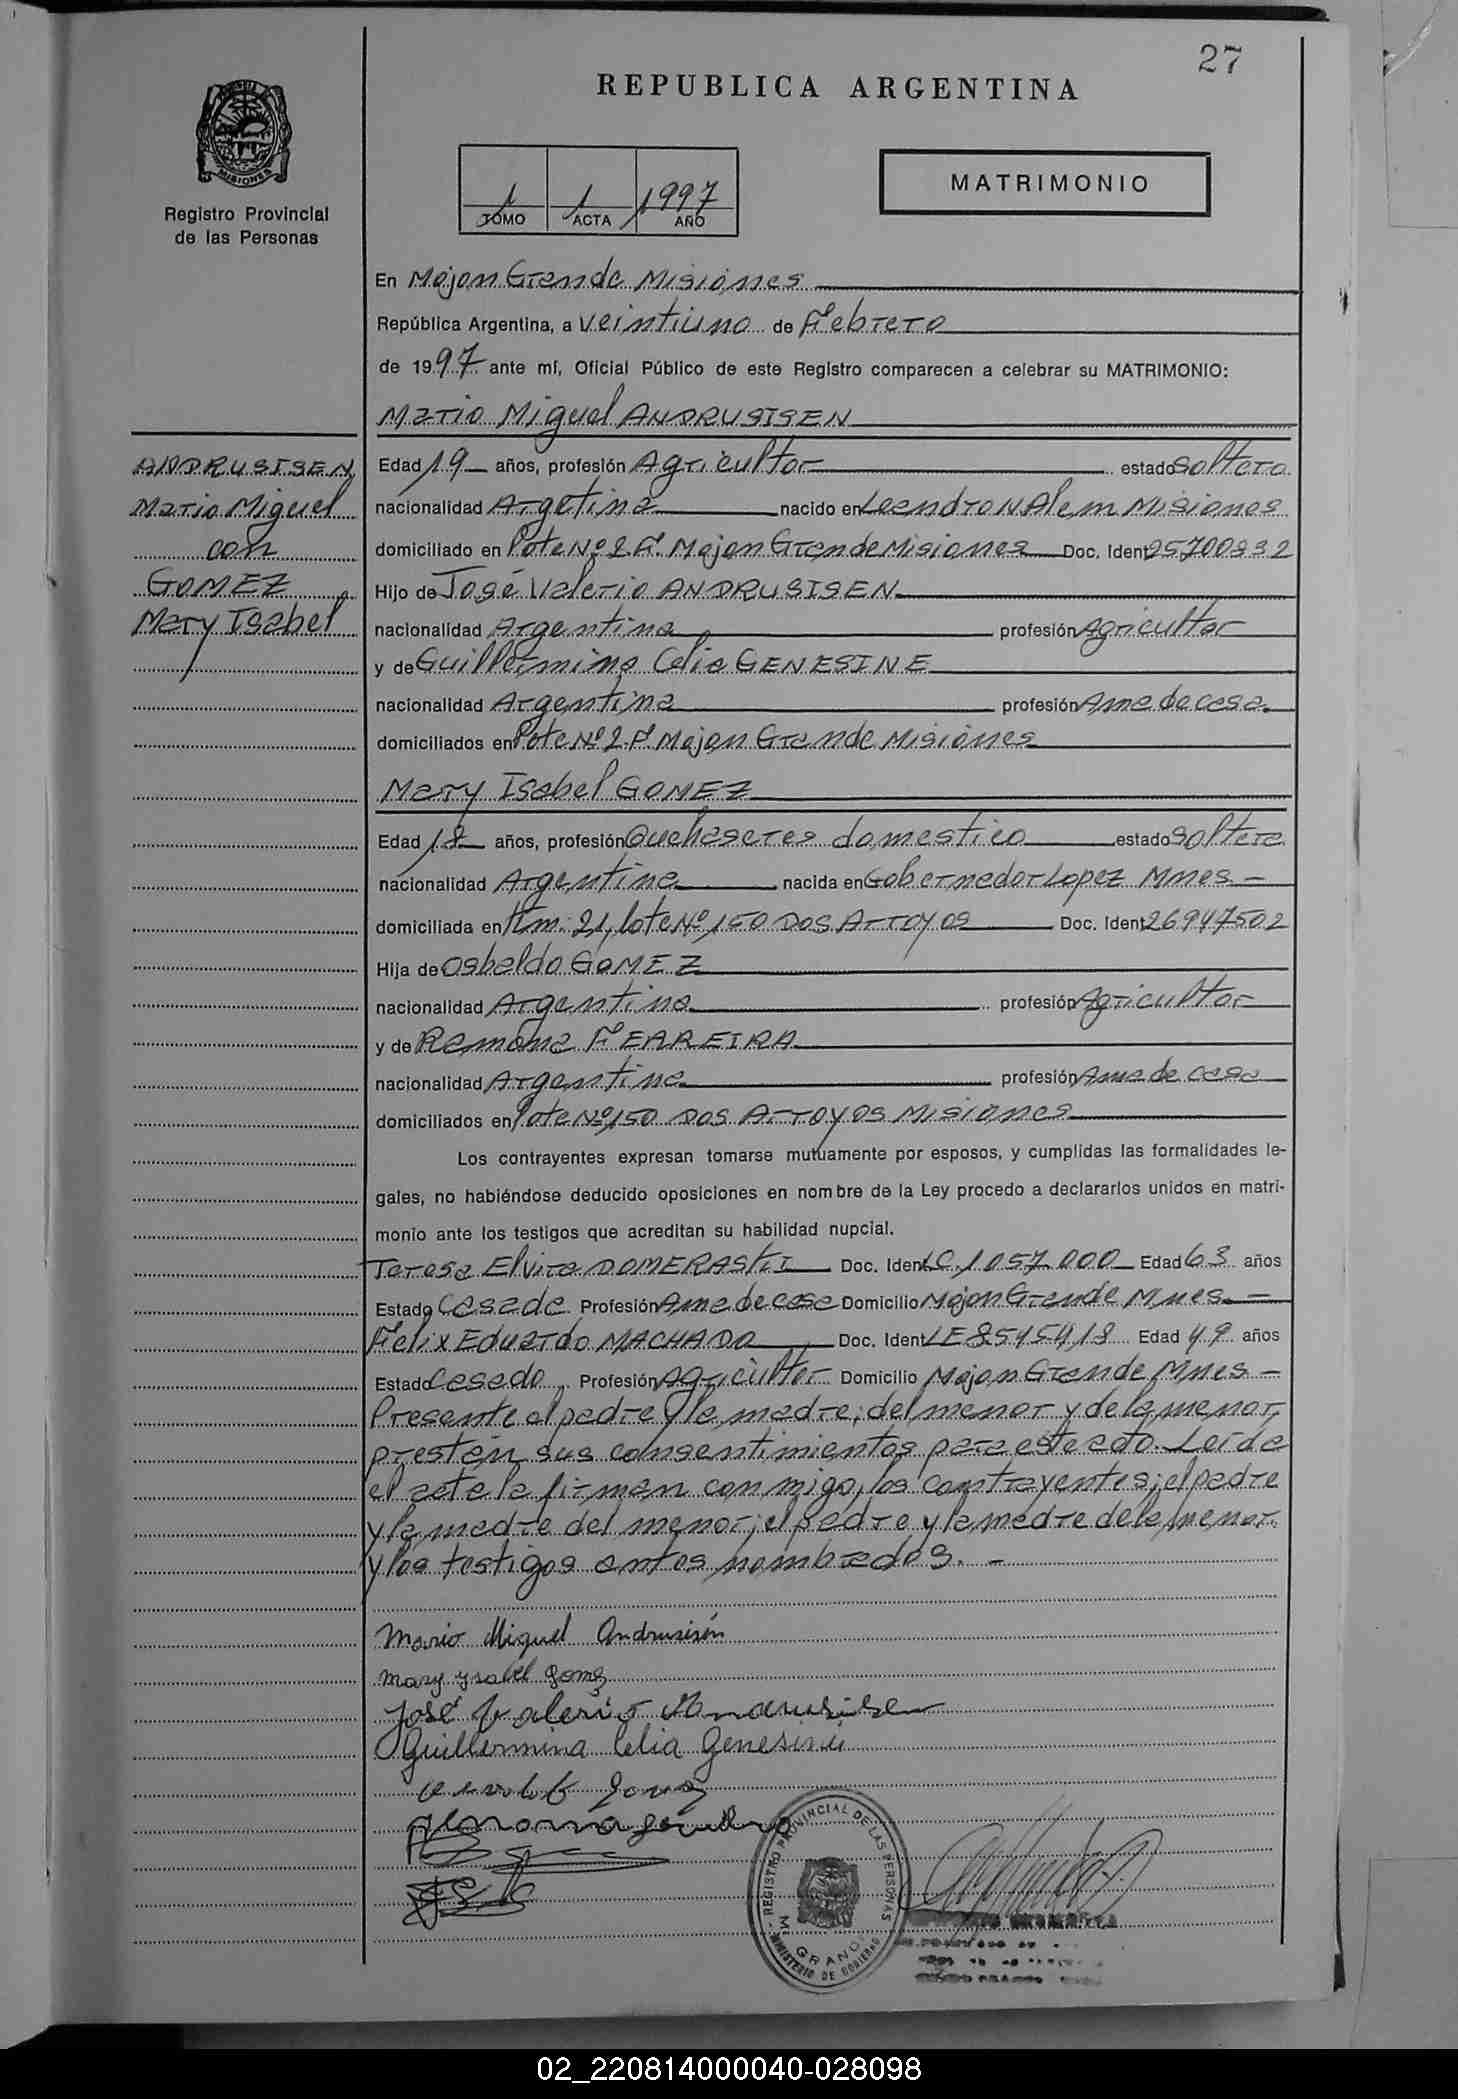 27
REPUBLICA ARGENTINA
MISIONES
Registro Provincial
de las Personas
1 1 1997
TOMO ACTA AÑO
MATRIMONIO
En Mojon Grande Misiones
República Argentina, a veintiuno de Febrero
de 1997 ante mí, Oficial Público de este Registro comparecen a celebrar su MATRIMONIO:
Mario Miguel ANDRUSISEN
ANDRUSISEN
Mario Miguel
con
GOMEZ
Mary Isabel
Edad 19 años, profesión Agricultor estado Soltero
nacionalidad Argetina nacido en Leandro N Alem Misiones
domiciliado en Lote Nº 2 Fº Mojon Grande Misiones Doc. Ident 25700932
Hijo de José Valerio ANDRUSISEN
nacionalidad Argentina profesión Agricultor
y de Guillermina Celia GENESINE
nacionalidad Argentina profesión Ama de casa
domiciliados en Lote Nº 2 Fº Mojon Grande Misiones
Mary Isabel GOMEZ
Edad 18 años, profesión Quehaseres domestico estado Soltera
nacionalidad Argentina nacida en Gobernador Lopez Mnes -
domiciliada en Km: 21, lote Nº 150 Dos Arroyos Doc. Ident 26947502
Hija de Osbaldo GOMEZ
nacionalidad Argentina profesión Agricultor
y de Ramona FERREIRA
nacionalidad Argentina profesión Ama de casa
domiciliados en lote Nº 150 Dos Arroyos Misiones
Los contrayentes expresan tomarse mutuamente por esposos, y cumplidas las formalidades le-
gales, no habiéndose deducido oposiciones en nombre de la Ley procedo a declararlos unidos en matri-
monio ante los testigos que acreditan su habilidad nupcial.
Teresa Elvira DOMERASKI Doc. Ident LC 1057.000 Edad 63 años
Estado Casada Profesión Ama de casa Domicilio Mojon Grande Mnes. -
Felix Eduardo MACHADO Doc. Ident LE 8545418 Edad 49 años
Estado Casado Profesión Agricultor Domicilio Mojon Grande Mnes -
Presente el padre y la madre; del menor y de la menor,
prestan sus consentimientos para este acto. Leida
el acta la firman conmigo, los contrayentes; el padre
y la madre del menor; el padre y la madre de la menor
y los testigos antes nombrados. -
Mario Miguel Andrusisén
Mary ysabel gomez
José Valerio Andrusisen
Guillermina Celia Genesini
REGISTRO PROVINCIAL DE LAS PERSONAS
Mº GRANDE
MINISTERIO DE GOBIERNO
02_220814000040-028098